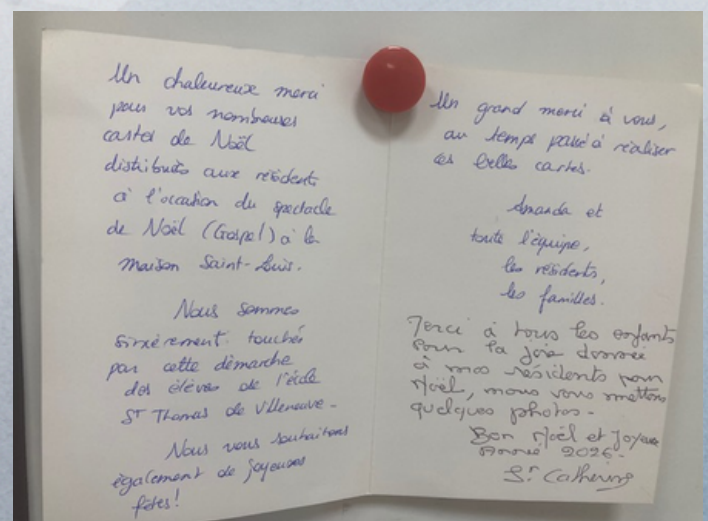 Un chaleureux merci
pour vos nombreuses
cartes de Noël
distribués aux résidents
à l'occasion du spectacle
de Noël (Gospel) à la
maison Saint-Louis.
Nous sommes
sincèrement touchés
par cette démarche
des élèves de l'école
St Thomas de Villeneuve.
Nous vous souhaitons
également de joyeuses
fêtes!
Un grand merci à vous,
au temps passé à réaliser
ces belles cartes.
Amanda et
toute l'équipe,
les résidents,
les familles.
Merci à tous les enfants
pour la joie donnée
à nos résidents pour
Noël, nous vous mettons
quelques photos.
Bon Noël et Joyeuse
Année 2026.
Sr Catherine